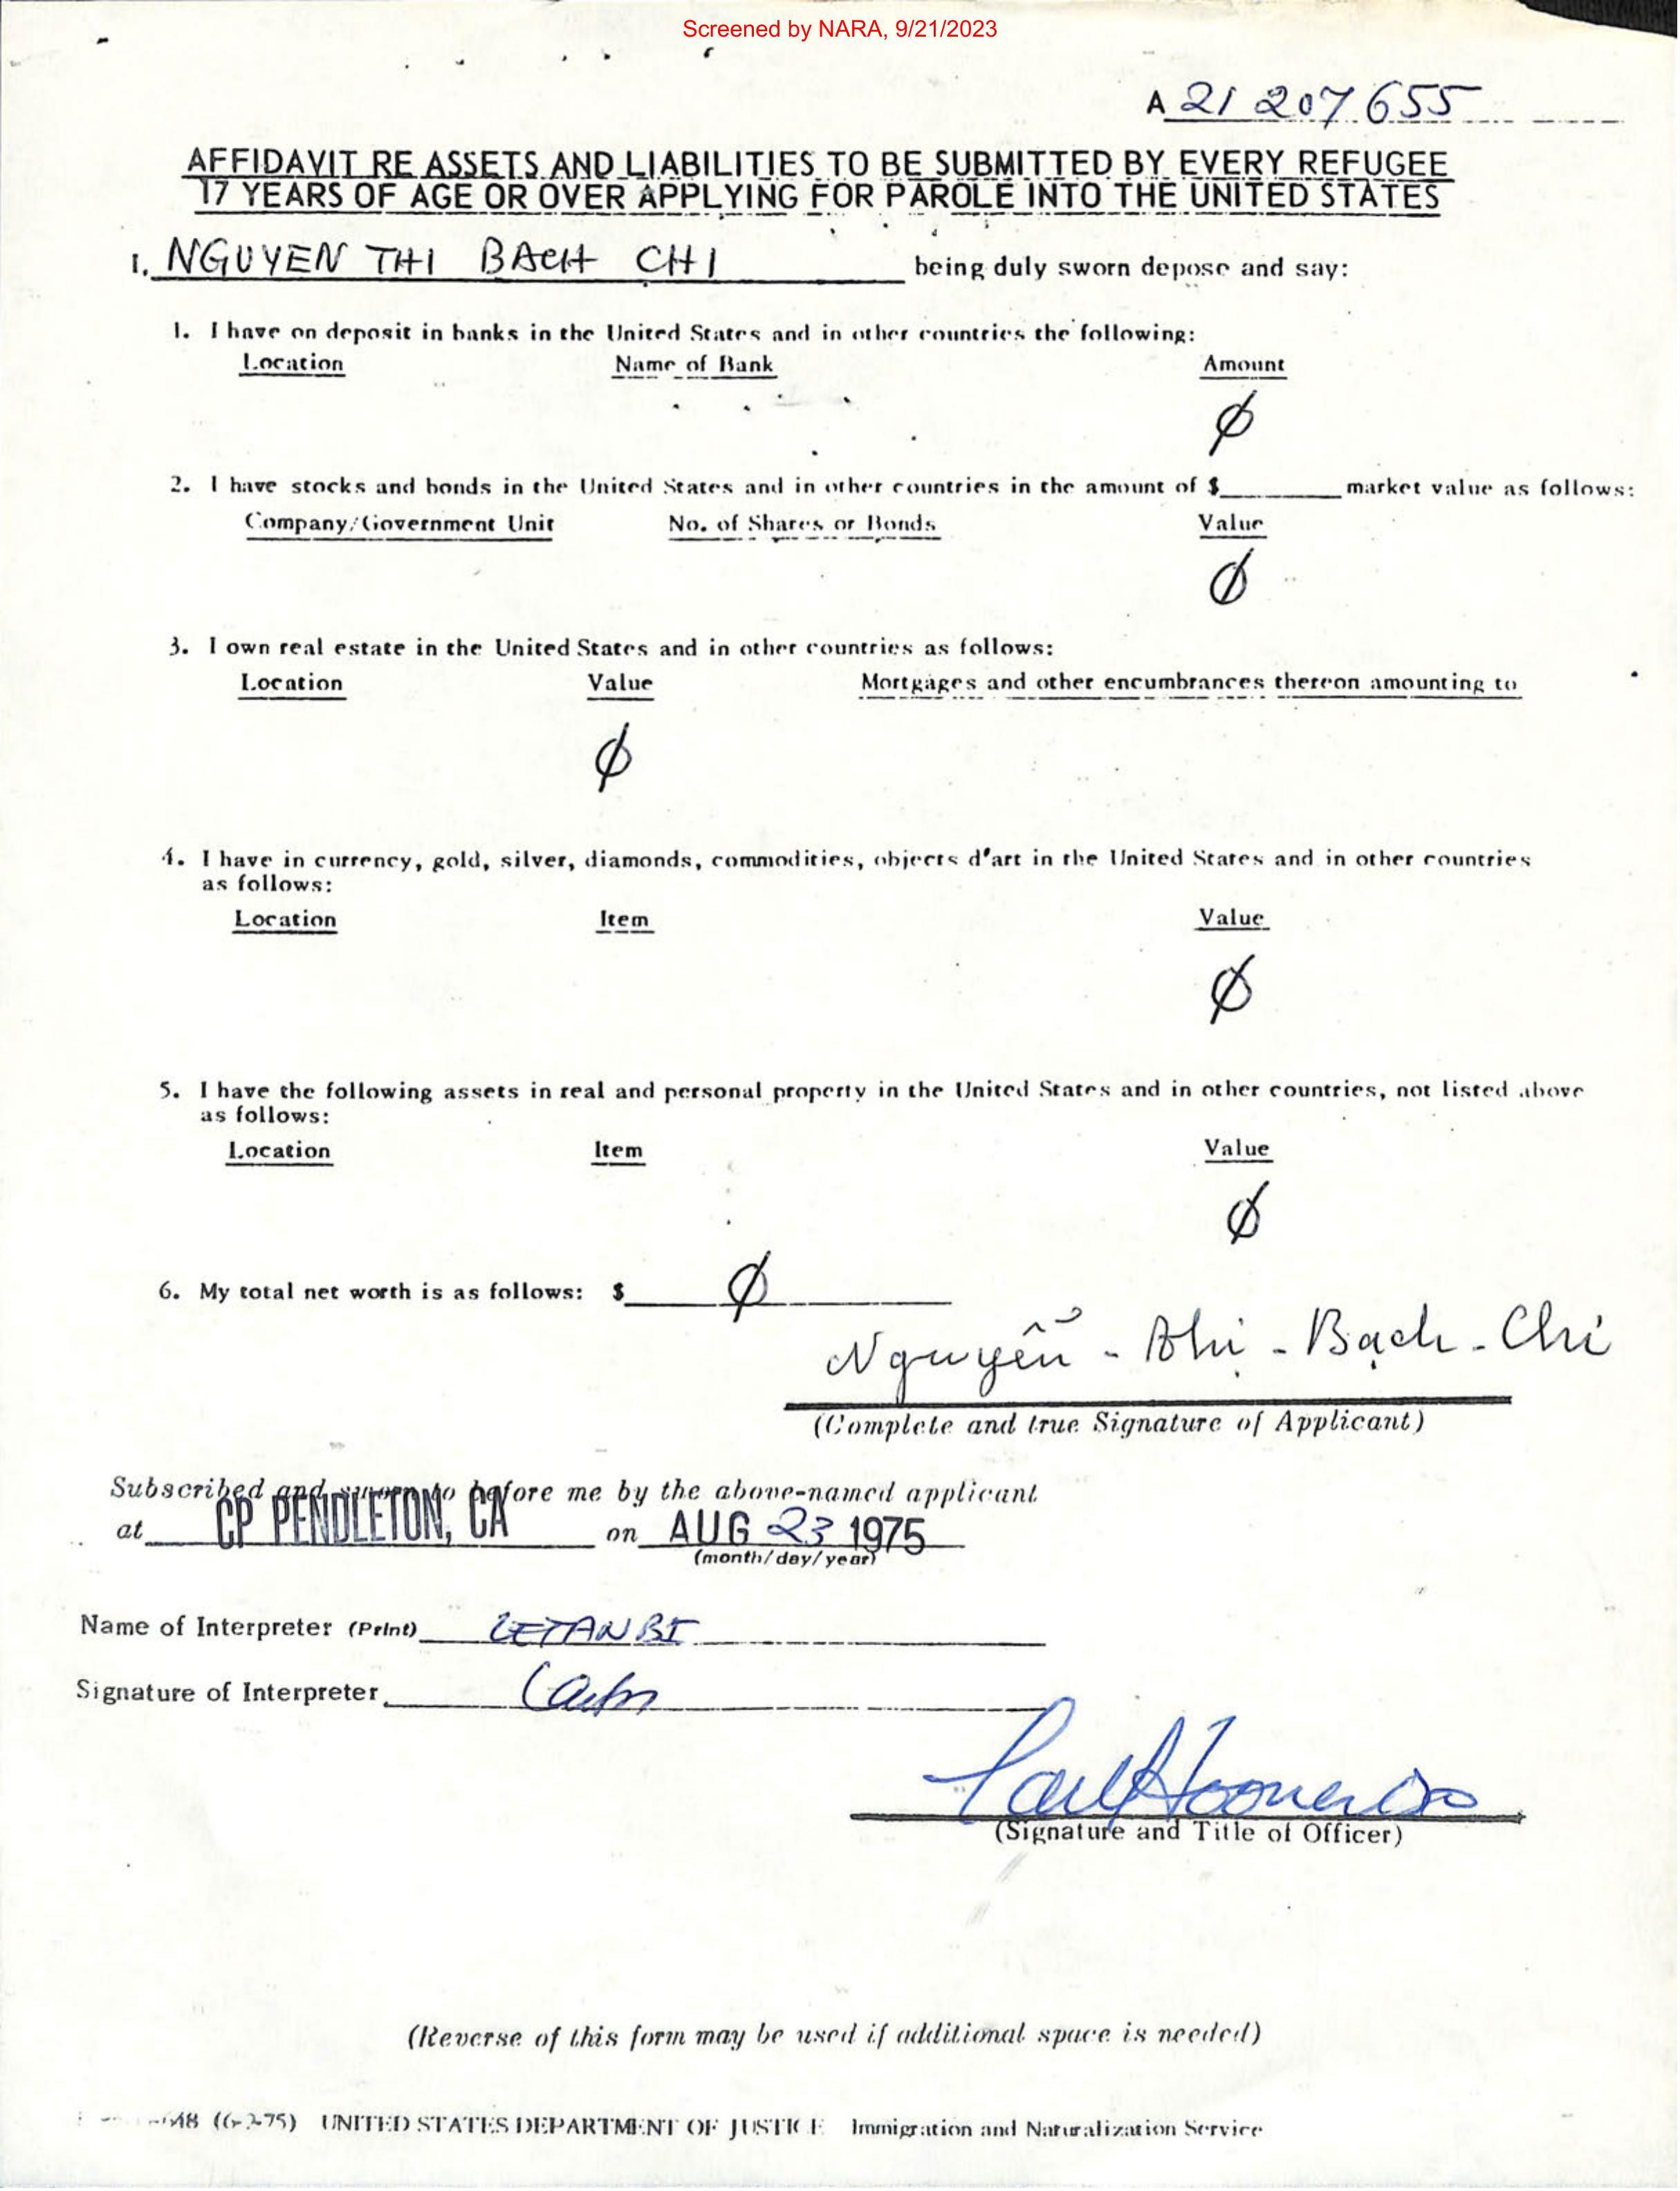 Screened by NARA, 9/21/2023
A 21 207 655
AFFIDAVIT RE ASSETS AND LIABILITIES TO BE SUBMITTED BY EVERY REFUGEE
17 YEARS OF AGE OR OVER APPLYING FOR PAROLE INTO THE UNITED STATES
I, NGUYEN THI BACH CHI being duly sworn depose and say:
1. I have on deposit in banks in the United States and in other countries the following:
Location Name of Bank Amount
Ø
2. I have stocks and bonds in the United States and in other countries in the amount of $ market value as follows:
Company/Government Unit No. of Shares or Bonds Value
Ø
3. I own real estate in the United States and in other countries as follows:
Location Value Mortgages and other encumbrances thereon amounting to
Ø
4. I have in currency, gold, silver, diamonds, commodities, objects d'art in the United States and in other countries
as follows:
Location Item Value
Ø
5. I have the following assets in real and personal property in the United States and in other countries, not listed above
as follows:
Location Item Value
Ø
6. My total net worth is as follows: $ Ø
Nguyễn - Thị - Bạch - Chi
(Complete and true Signature of Applicant)
Subscribed and sworn to before me by the above-named applicant
at CP PENDLETON, CA on AUG 23 1975
(month/day/year)
Name of Interpreter (Print) LETAN BI
Signature of Interpreter
(Signature and Title of Officer)
(Reverse of this form may be used if additional space is needed)
648 (6-2-75) UNITED STATES DEPARTMENT OF JUSTICE Immigration and Naturalization Service